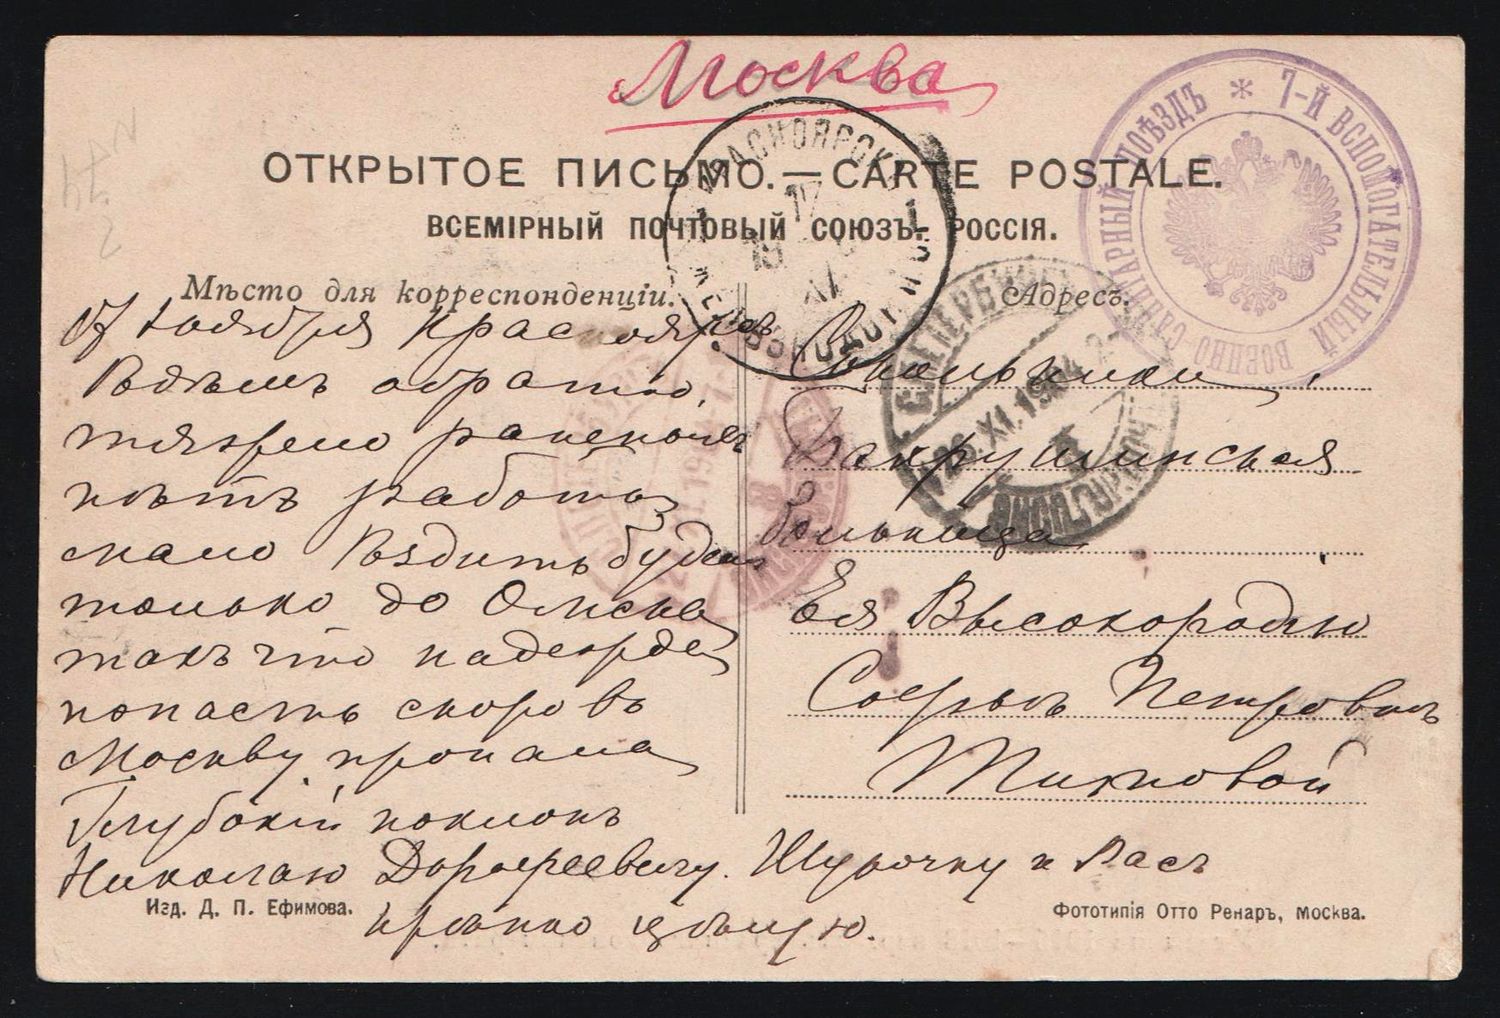 Москва
ОТКРЫТОЕ ПИСЬМО.—CARTE POSTALE.
ВСЕМІРНЫЙ ПОЧТОВЫЙ СОЮЗЪ. РОССІЯ.
Мѣсто для корреспонденціи.
Адресъ.
7-Й ВСПОМОГАТЕЛЬНЫЙ ВОЕННО-САНИТАРНЫЙ ПОѢЗДЪ
КРАСНОЯРСКЪ
С.ПЕТЕРБУРГЪ
26.XI.1904
17 Ноября Красноярскъ
Ѣдемъ обратно,
тяжело раненыхъ
нѣтъ работы
мало Ѣздить будемъ
только до Омска
такъ что надежда
попасть скоро въ
Москву пропала
Глубокій поклонъ
Николаю Дорофеевичу. Шурочку и Васъ
крѣпко цѣлую.
Сокольники
Бахрушинская
больница
Ея Высокородію
Софьѣ Петровнѣ
Тихновой
Изд. Д. П. Ефимова.
Фототипія Отто Ренаръ, Москва.